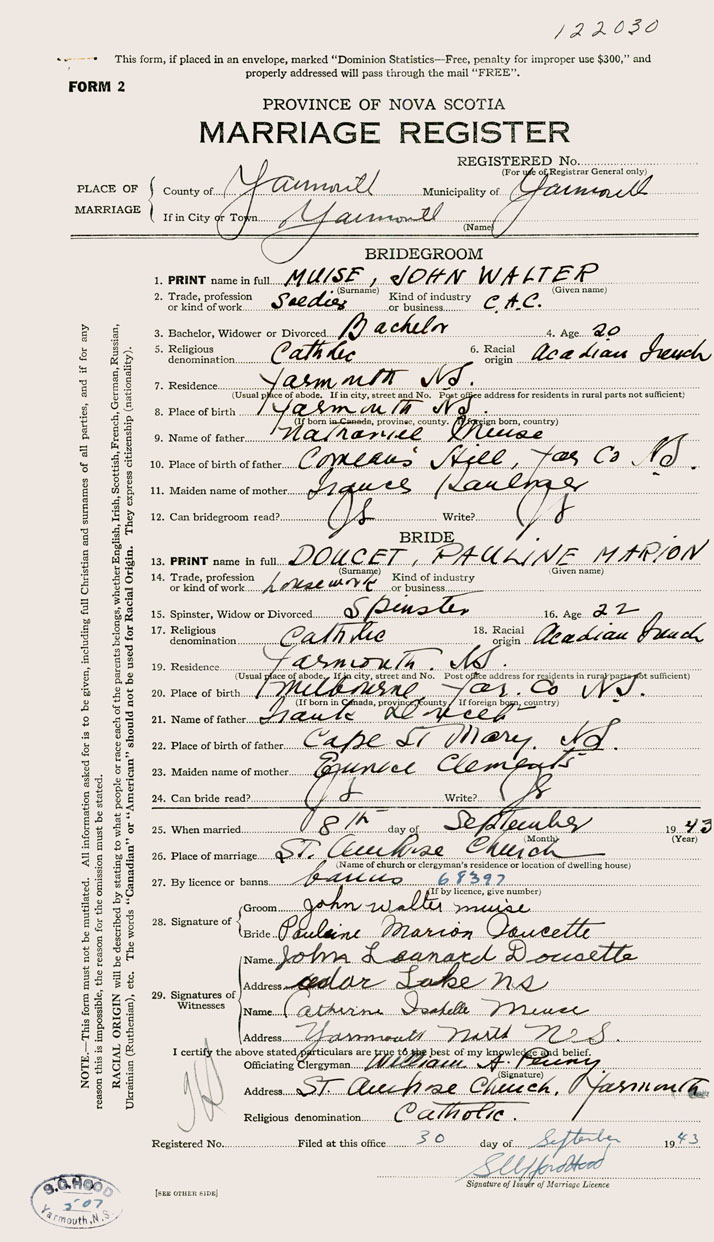 122030
This form, if placed in an envelope, marked "Dominion Statistics—Free, penalty for improper use $300," and
properly addressed will pass through the mail "FREE".
FORM 2
PROVINCE OF NOVA SCOTIA
MARRIAGE REGISTER
REGISTERED No.
(For use of Registrar General only)
PLACE OF MARRIAGE
County of Yarmouth Municipality of Yarmouth
If in City or Town Yarmouth
(Name)
BRIDEGROOM
1. PRINT name in full MUISE, JOHN WALTER
(Surname) (Given name)
2. Trade, profession or kind of work Soldier Kind of industry or business C.A.C.
3. Bachelor, Widower or Divorced Bachelor 4. Age 20
5. Religious denomination Catholic 6. Racial origin Acadian French
7. Residence Yarmouth N.S.
(Usual place of abode. If in city, street and No. Post office address for residents in rural parts not sufficient)
8. Place of birth Yarmouth N.S.
(If born in Canada, province, county. If foreign born, country)
9. Name of father Nathaniel Meuse
10. Place of birth of father Comeau's Hill, Yar Co N.S.
11. Maiden name of mother Frances
12. Can bridegroom read? Write?
BRIDE
13. PRINT name in full DOUCET, PAULINE MARION
(Surname) (Given name)
14. Trade, profession or kind of work housework Kind of industry or business
15. Spinster, Widow or Divorced Spinster 16. Age 22
17. Religious denomination Catholic 18. Racial origin Acadian French
19. Residence Yarmouth. N.S.
(Usual place of abode. If in city, street and No. Post office address for residents in rural parts not sufficient)
20. Place of birth Melbourne, Yar. Co N.S.
(If born in Canada, province, county If foreign born, country)
21. Name of father Frank Doucet
22. Place of birth of father Cape St Mary. N.S.
23. Maiden name of mother Eunice Clements
24. Can bride read? Write?
25. When married 8th day of September 1943
(Month) (Year)
26. Place of marriage ST. Ambrose Church
(Name of church or clergyman's residence or location of dwelling house)
27. By licence or banns banns 68397
(If by licence, give number)
28. Signature of
Groom John Walter muise
Bride Pauline Marion Doucette
29. Signatures of Witnesses
Name John Leanard Doucette
Address Cedar Lake NS
Name Catherine Isabelle Meuse
Address Yarmouth North N.S.
I certify the above stated particulars are true to the best of my knowledge and belief.
Officiating Clergyman William A. Penny
(Signature)
Address ST. Ambrose Church, Yarmouth
Religious denomination Catholic.
Registered No. Filed at this office 30 day of September 1943
Signature of Issuer of Marriage Licence
[SEE OTHER SIDE]
S.G. HOOD
Yarmouth, N.S.
NOTE.—This form must not be mutilated. All information asked for is to be given, including full Christian and surnames of all parties, and if for any
reason this is impossible, the reason for the omission must be stated.
RACIAL ORIGIN will be described by stating to what people or race each of the parents belongs, whether English, Irish, Scottish, French, German, Russian,
Ukrainian (Ruthenian), etc. The words "Canadian" or "American" should not be used for Racial Origin. They express citizenship (nationality).